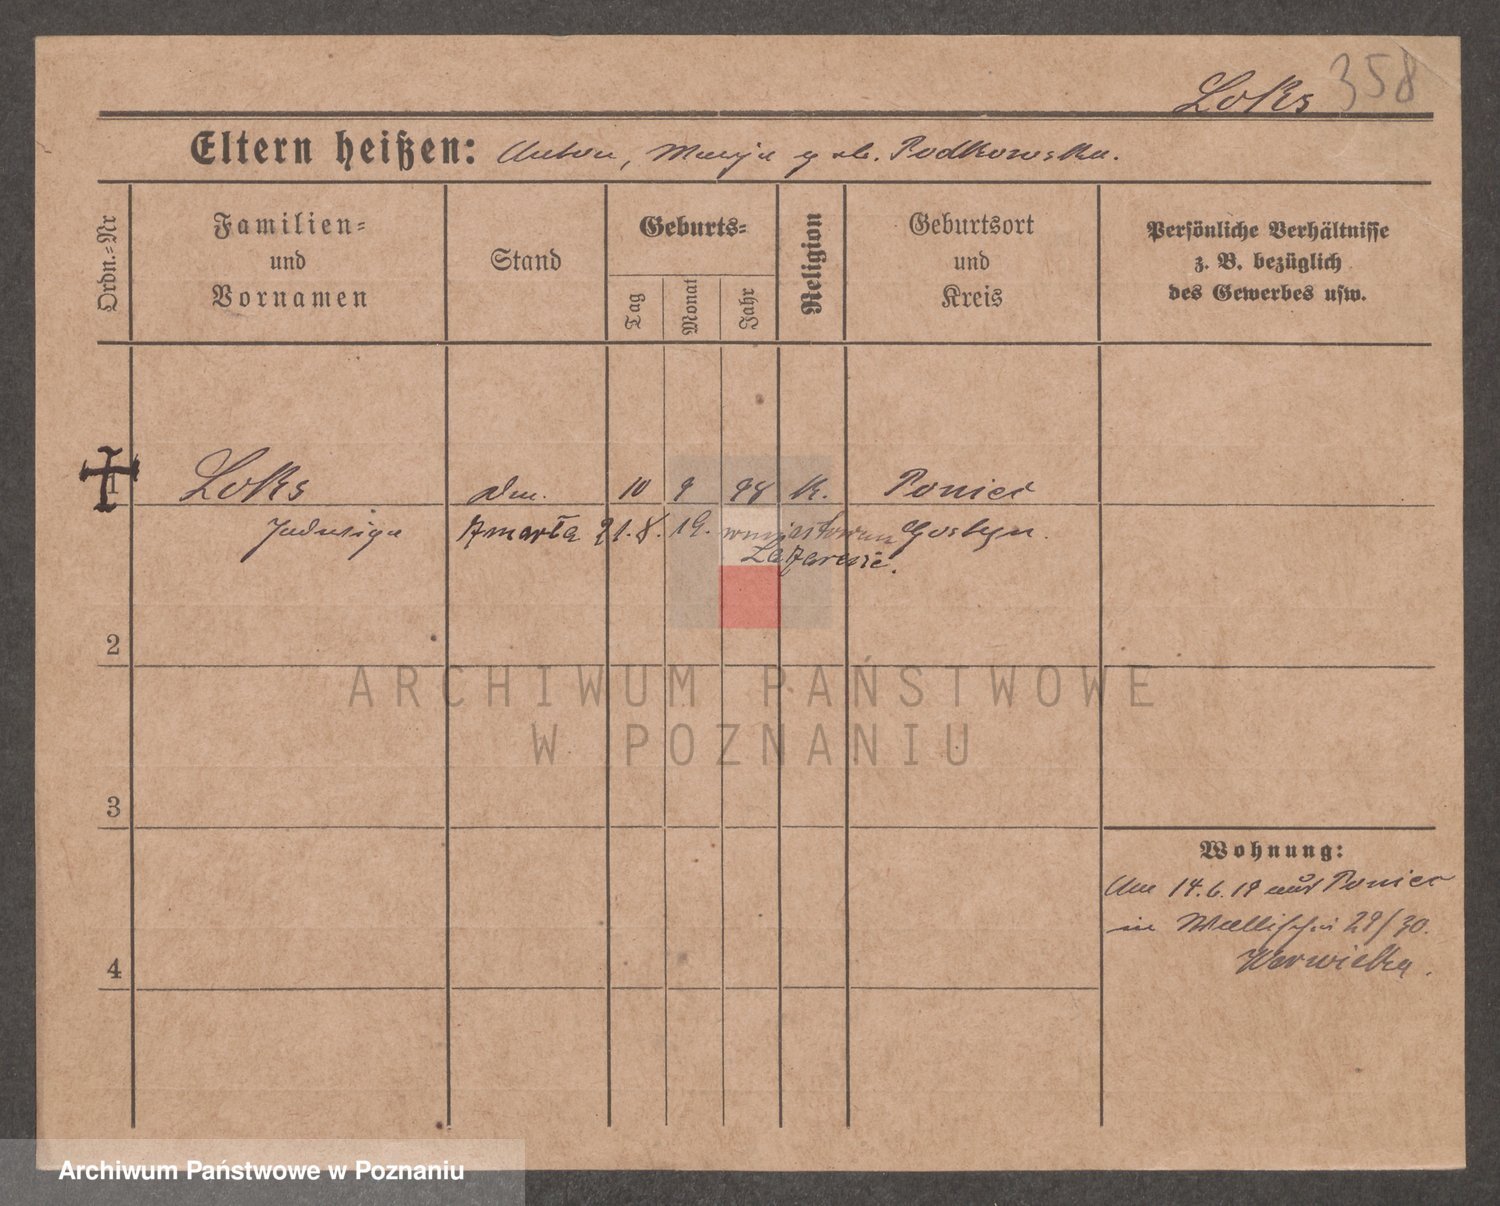 Loks 358
Eltern heißen: Anton, Maryja geb. Podkowska.
Ordn.=Nr
Familien=
und
Vornamen
Stand
Geburts=
Tag
Monat
Jahr
Religion
Geburtsort
und
Kreis
Persönliche Verhältnisse
z. B. bezüglich
des Gewerbes usw.
1 Loks 10 9 98 k. Poniec
Jadwiga zmarła 21.8.19. w miastowem Gostyn.
Lazarecie.
2
3
4
Wohnung:
Am 14.6.19 aus Poniec
in Wallischei 29/30.
ARCHIWUM PAŃSTWOWE
W POZNANIU
Archiwum Państwowe w Poznaniu